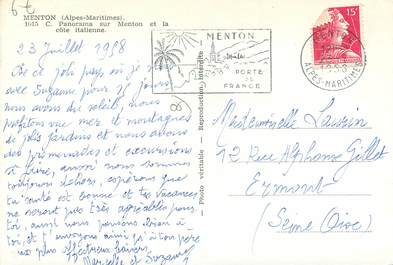 6€
MENTON (Alpes-Maritimes).
1645 C. Panorama sur Menton et la
côte italienne.
23 Juillet 1958
De ce joli pays où je suis
avec Suzanne pour 15 jours
nous avons du soleil, nous
profitons vue mer et montagnes
de plus jardins et nous avons
des promenades et excursions
à faire, aussi nous sommes
toujours dehors, espérons que
ta santé est bonne et tes vacances
ne seront pas très agréables pour
toi, aussi nous pensons bien à
toi, et t'envoyons ainsi qu'à ton père
nos plus affectueux baisers
Marcelle et Suzanne
Photo véritable - Reproduction interdite
MENTON
PORTE
DE
FRANCE
15F
MENTON
ALPES-MARITIMES
Mademoiselle Lauzin
12 Rue Alphonse Gillet
Ermont
(Seine Oise)